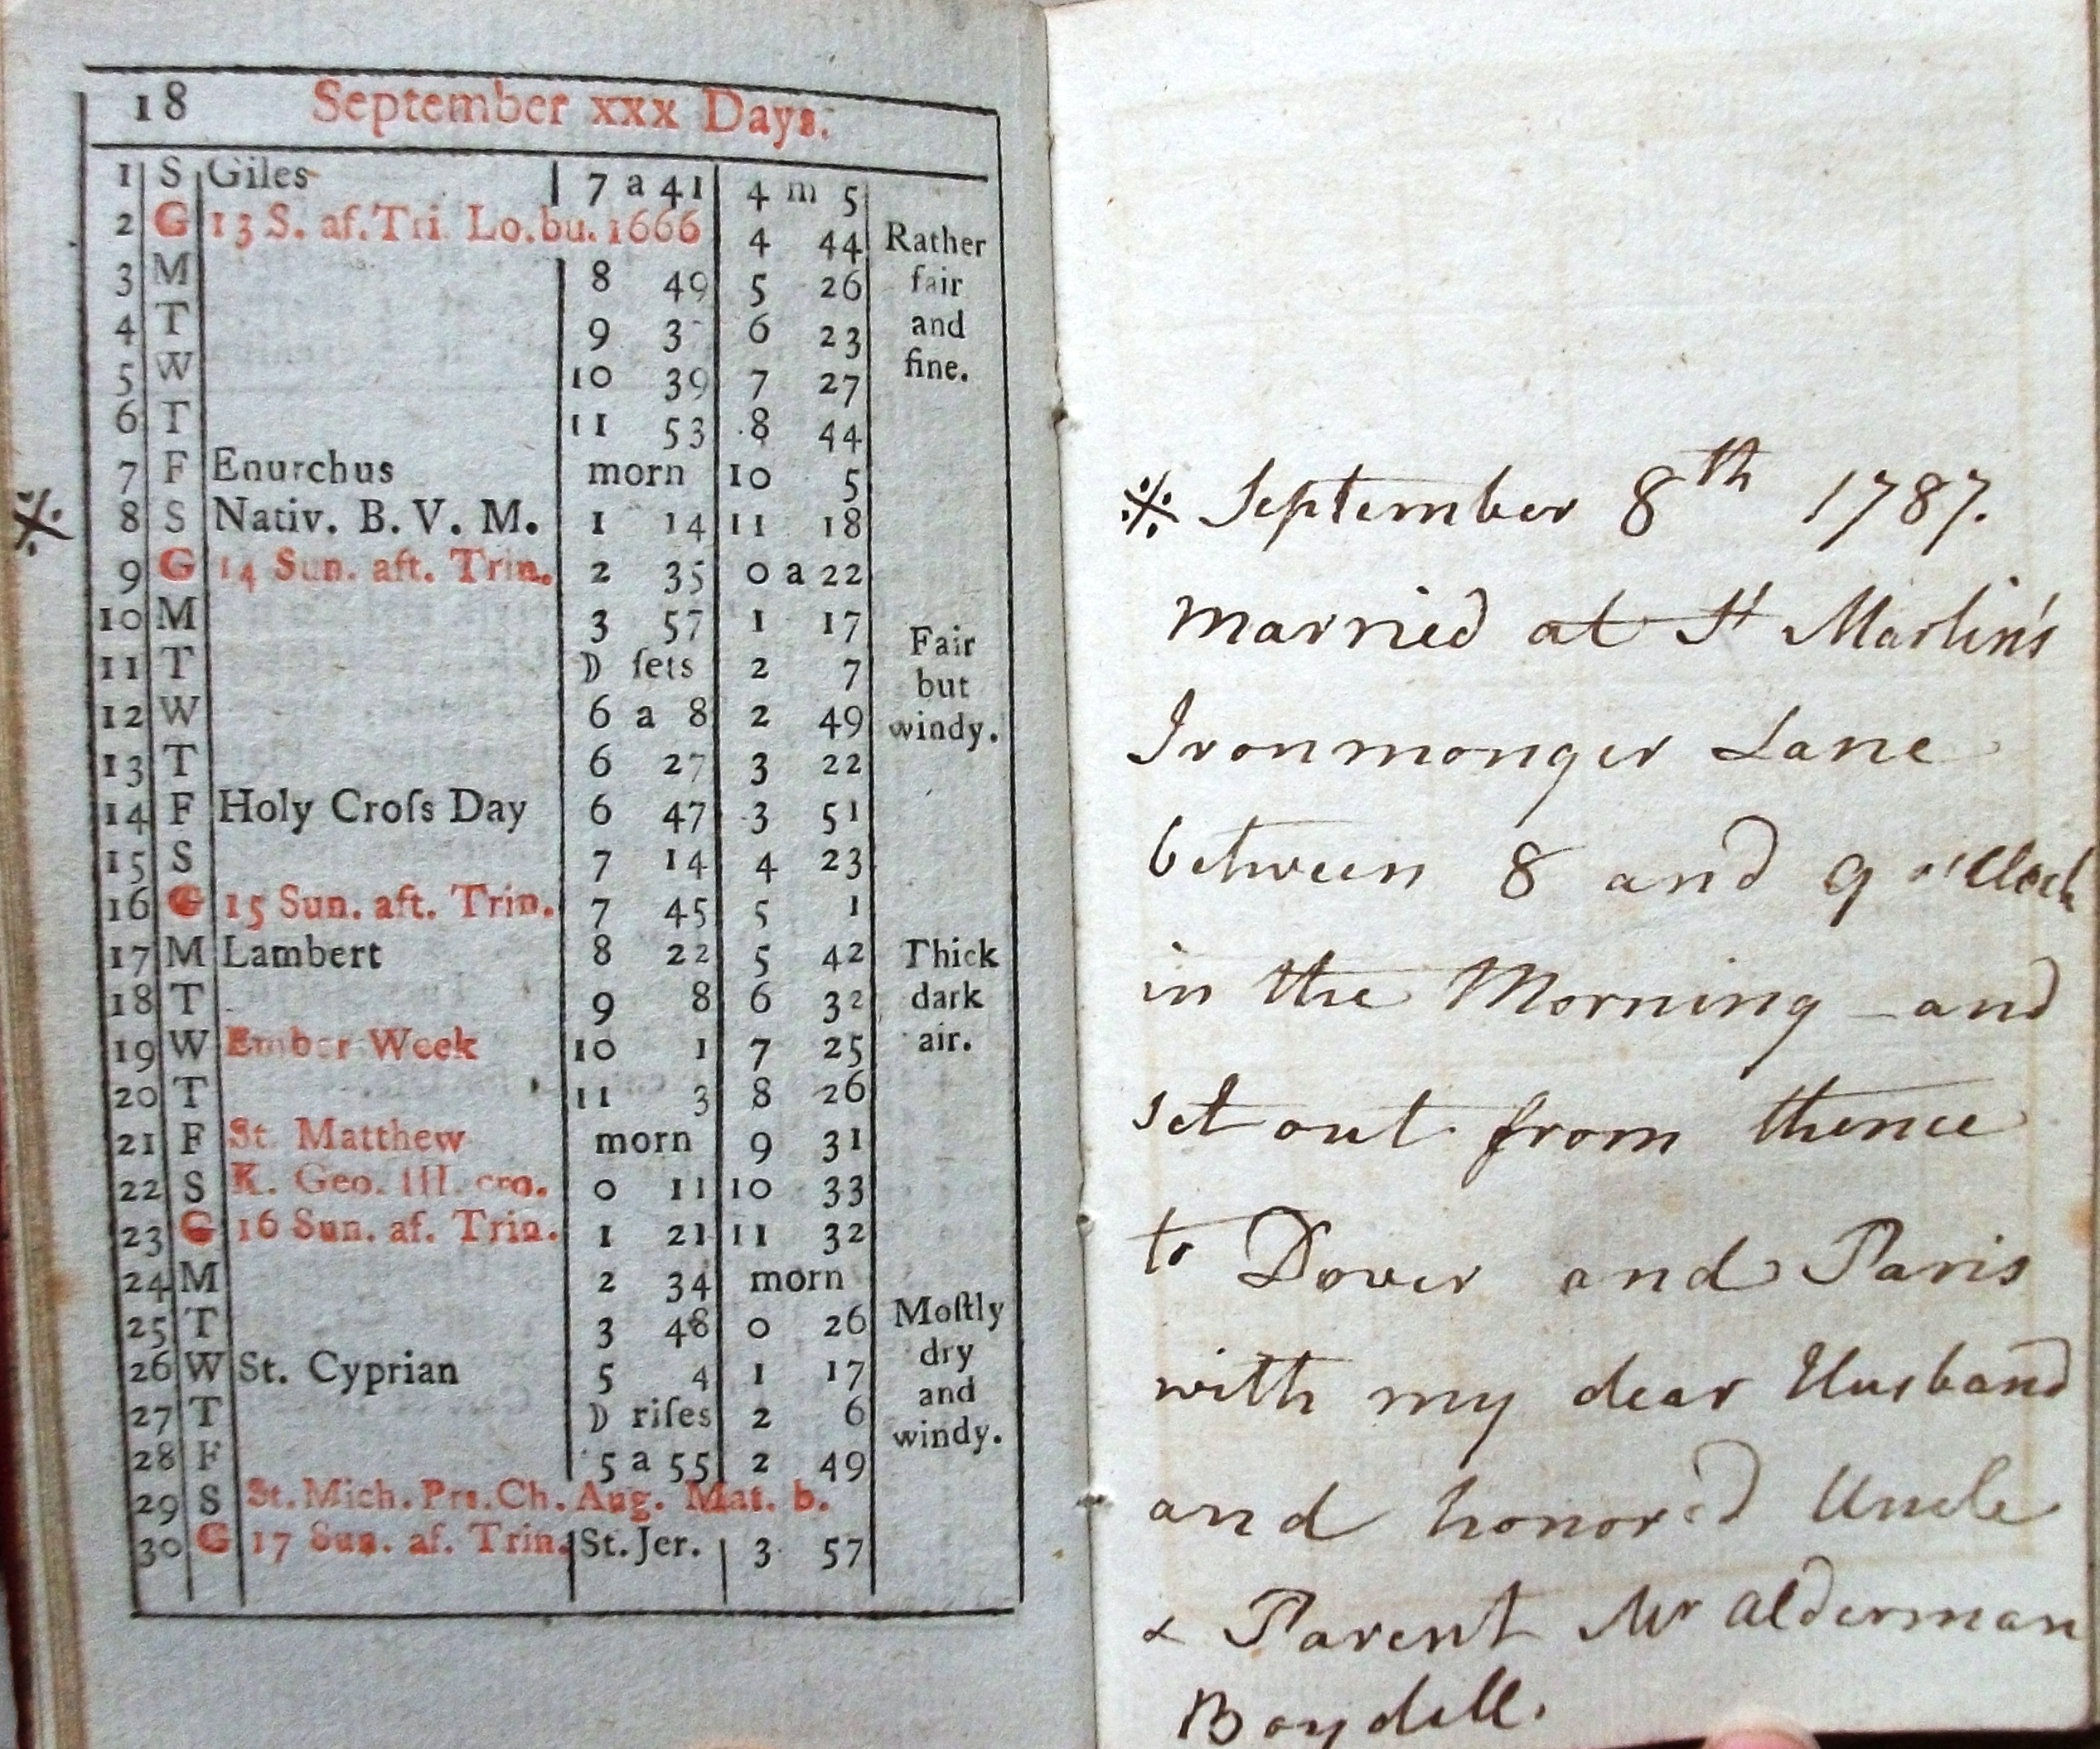 18 September xxx Days.
1 S Giles 7 a 41 4 m 5
2 G 13 S. af. Tri. Lo.bu. 1666 4 44 Rather
3 M 8 49 5 26 fair
4 T 9 3 6 23 and
5 W 10 39 7 27 fine.
6 T 11 53 8 44
7 F Enurchus morn 10 5
※ 8 S Nativ. B. V. M. 1 14 11 18
9 G 14 Sun. aft. Trin. 2 35 0 a 22
10 M 3 57 1 17 Fair
11 T ☽ ſets 2 7 but
12 W 6 a 8 2 49 windy.
13 T 6 27 3 22
14 F Holy Croſs Day 6 47 3 51
15 S 7 14 4 23
16 G 15 Sun. aft. Trin. 7 45 5 1
17 M Lambert 8 22 5 42 Thick
18 T 9 8 6 32 dark
19 W Ember Week 10 1 7 25 air.
20 T 11 3 8 26
21 F St. Matthew morn 9 31
22 S K. Geo. III. cro. 0 11 10 33
23 G 16 Sun. af. Trin. 1 21 11 32
24 M 2 34 morn
25 T 3 48 0 26 Moſtly
26 W St. Cyprian 5 4 1 17 dry
27 T ☽ riſes 2 6 and
28 F 5 a 55 2 49 windy.
29 S St. Mich. Prs. Ch. Aug. Mat. b.
30 G 17 Sun. af. Trin. St. Jer. 3 57
※ September 8th 1787.
married at St Martin's
Ironmonger Lane
between 8 and 9 o'Clock
in the Morning - and
set out from thence
to Dover and Paris
with my dear Husband
and honored Uncle
& Parent Mr Alderman
Boydell.